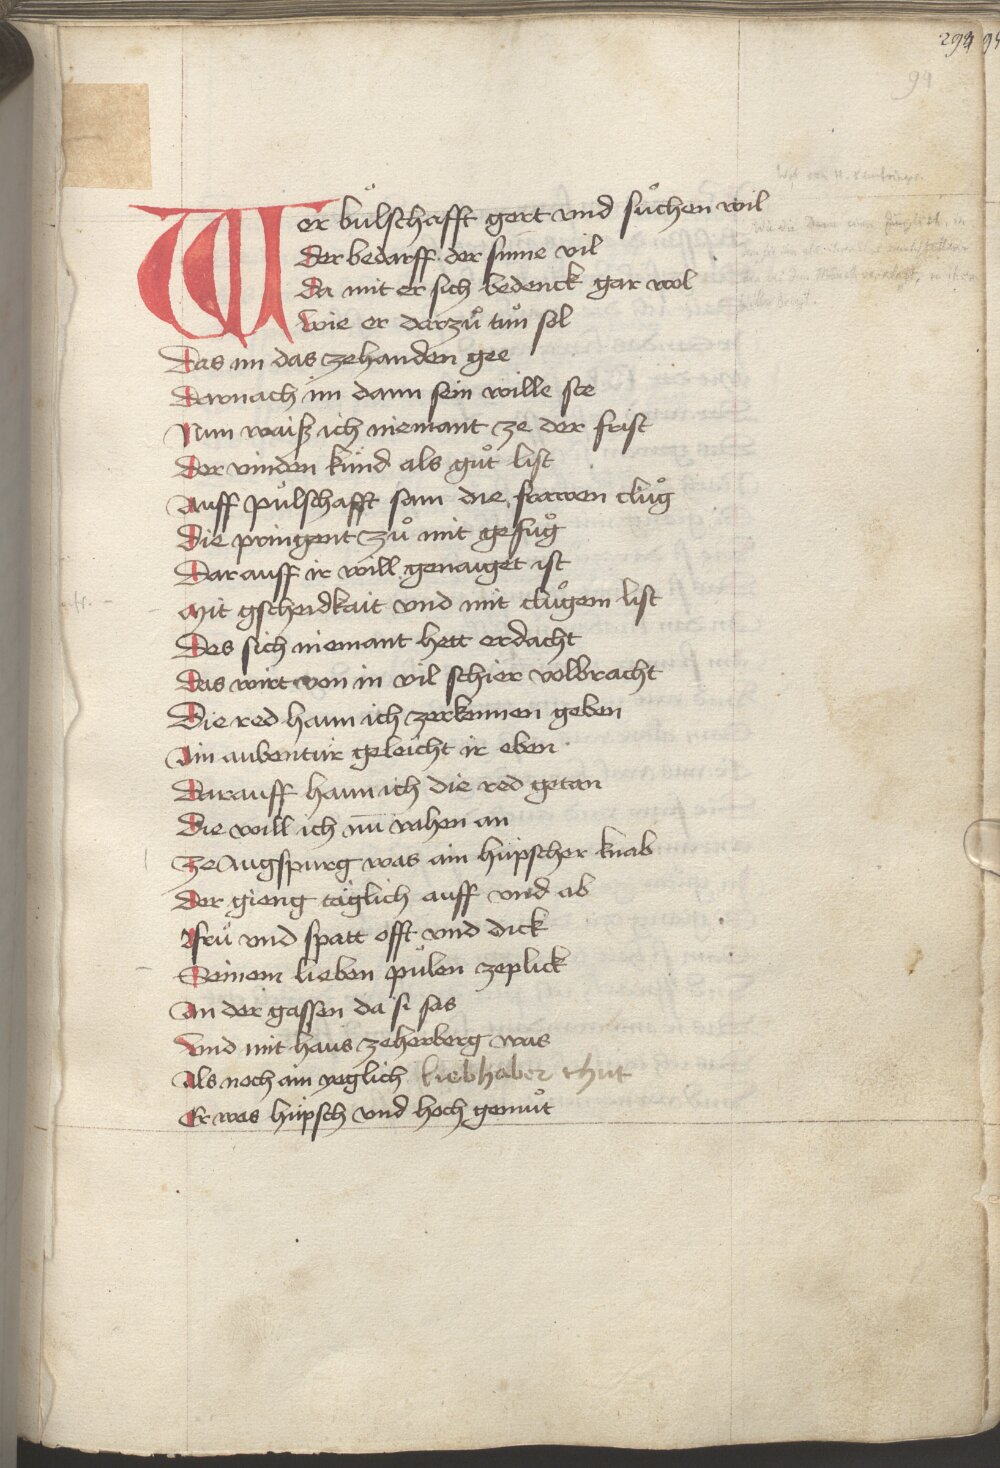 294 94
94
Wer bůlschafft gert vnd sůchen wil
Der bedarff der sinne vil
Da mit er sich bedenck gar wol
Wie er darzů tůn sol
Das im das zehanden gee
Darnach im dann sein wille ste
Nun waiß ich niemant ze der frist
Der vinden kůnd als gůt list
Auff půlschafft sam die frawen clůg
Die pringent zů mit gefůg
Darauff ir will genaiget ist
Mit gscheidkait vnd mit clůgem list
Des sich niemant hett erdacht
Das wirt von in vil schier volbracht
Die red hann ich zerkennen geben
Ain aubentür geleicht ir eben
Darauff hann ich die red getan
Die will ich nū vahen an
Ze Augspurg was ain hüpscher knab
Der gieng täglich auff vnd ab
Frů vnd spatt offt vnd dick
Seinem lieben půlen zeplick
An der gassen da si sas
Vnd mit haus zeherberg was
Als noch ain yeglich liebhaber thut
Er was hüpsch vnd hoch gemůt